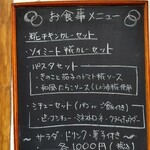 お食事メニュー
・糀チキンカレーセット
・ソイミート糀カレーセット
・パスタセット
・きのこと茄子のトマト糀ソース
・和風たらこソース(しょうゆ糀使用)
・シチューセット(パンorご飯付き)
・ビーフシチュー
〜サラダ・ドリンク・菓子付き〜
各1000円(税込)